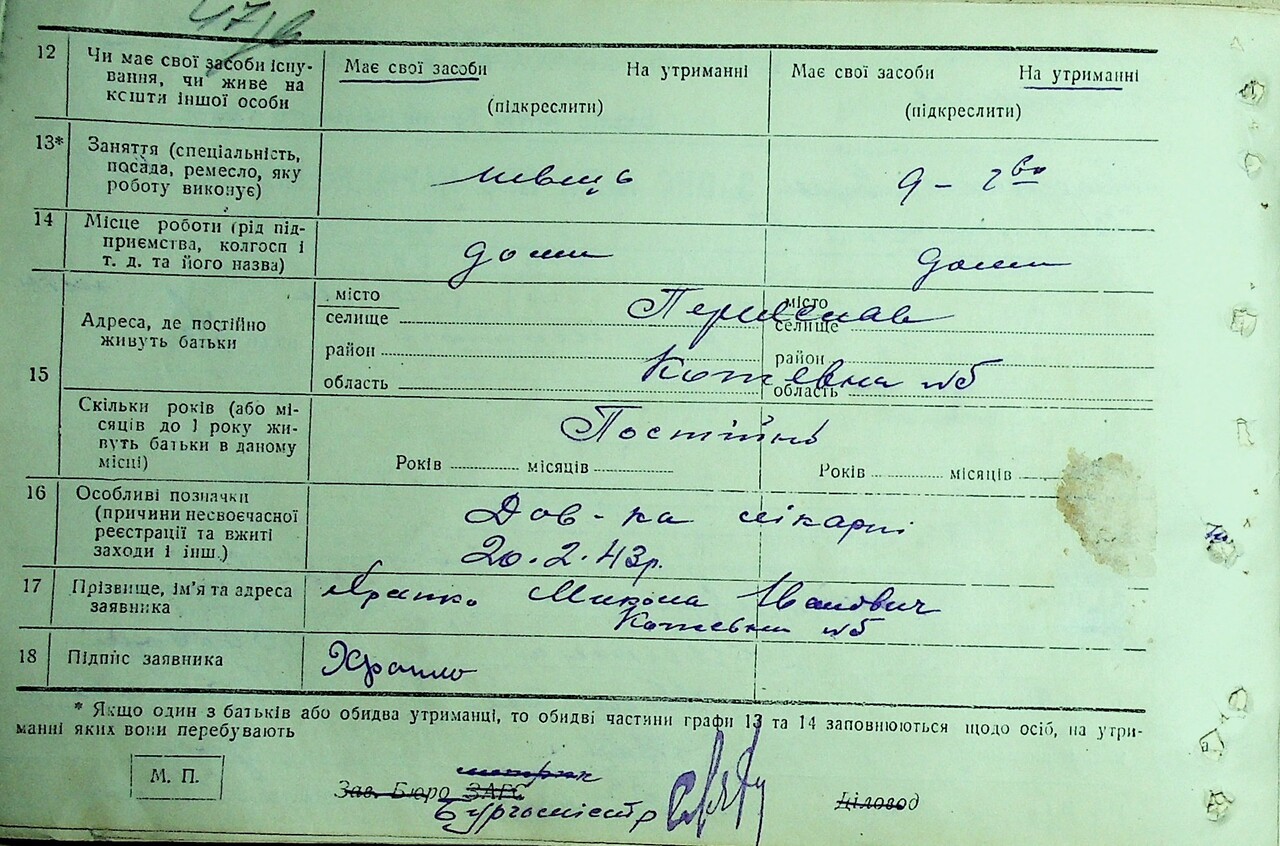 12 Чи має свої засоби існу-
вання, чи живе на
кошти іншої особи
Має свої засоби На утриманні
(підкреслити)
Має свої засоби На утриманні
(підкреслити)
13* Заняття (спеціальність,
посада, ремесло, яку
роботу виконує)
швець
д – гво
14 Місце роботи (рід під-
приємства, колгосп і
т. д. та його назва)
дома
дома
15 Адреса, де постійно
живуть батьки
місто
селище
район
область
місто
селище
район
область
Переяслав
№5
Скільки років (або мі-
сяців до 1 року жи-
вуть батьки в даному
місці)
Постійно
Років місяців
Років місяців
16 Особливі позначки
(причини несвоєчасної
реєстрації та вжиті
заходи і інш.)
Дов-ка лікарні
20.2.43р.
17 Прізвище, ім'я та адреса
заявника
Микола Іванович
№5
18 Підпис заявника
* Якщо один з батьків або обидва утриманці, то обидві частини графи 13 та 14 заповнюються щодо осіб, на утри-
манні яких вони перебувають
М. П.
Зав. Бюро ЗАГС
Бургомістр
Діловод